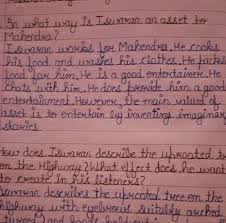 In what way is Iswaran an asset to
Mahendra?
Iswaran works for Mahendra. He cooks
his food and washes his clothes. He packs
food for him. He is a good entertainer. He
chats with him. He does provide him a good
entertainment. However, the main value of
asset is to entertain by inventing imaginary
stories.
How does Iswaran describe the uprooted tree
on the Highway? What effect does he want
to create in his listeners?
Iswaran describes the uprooted tree on the
highway with eyebrows suitably arched